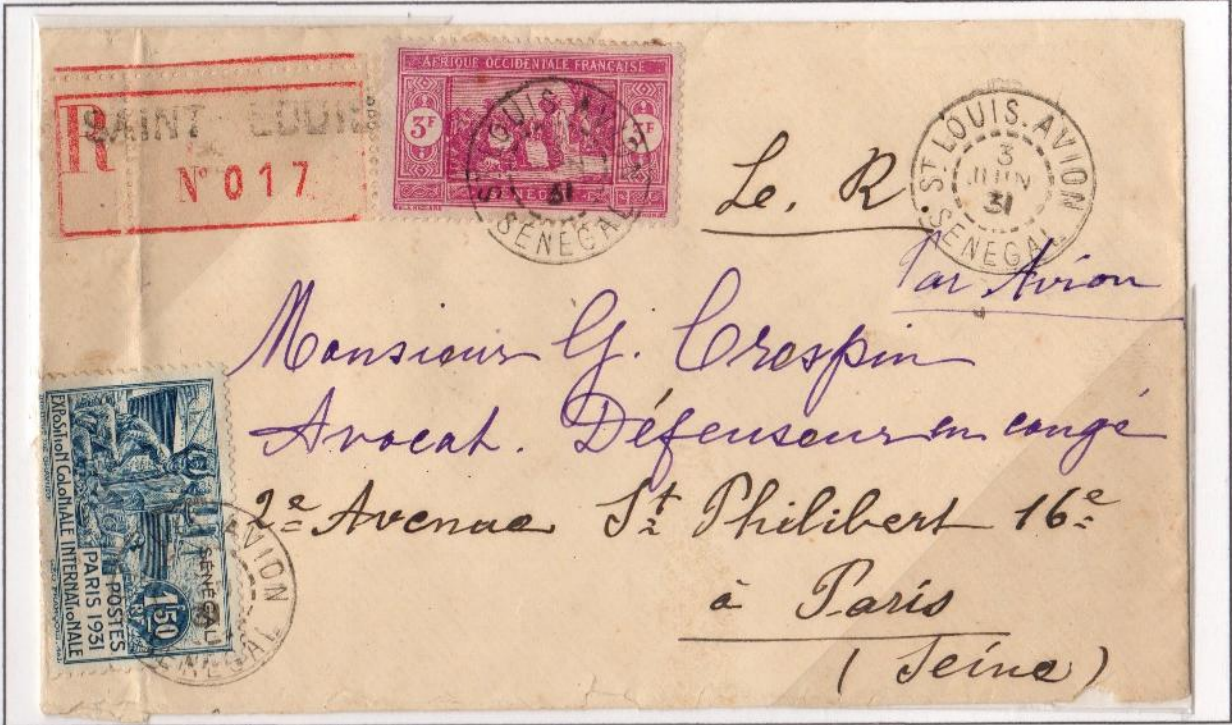 R
SAINT LOUIS
N° 017
AFRIQUE OCCIDENTALE FRANÇAISE
3F
3F
SÉNÉGAL
ST LOUIS. AVION
31
SENEGAL
ST LOUIS. AVION
3
JUIN
31
SENEGAL
Le, R
Par Avion
Monsieur G. Crespin
Avocat. Défenseur en congé
2e Avenue St Philibert 16e
à Paris
(Seine)
EXPOSITION COLONIALE INTERNATIONALE
PARIS 1931
POSTES
1F50
SÉNÉGAL
AVION
SENEGAL